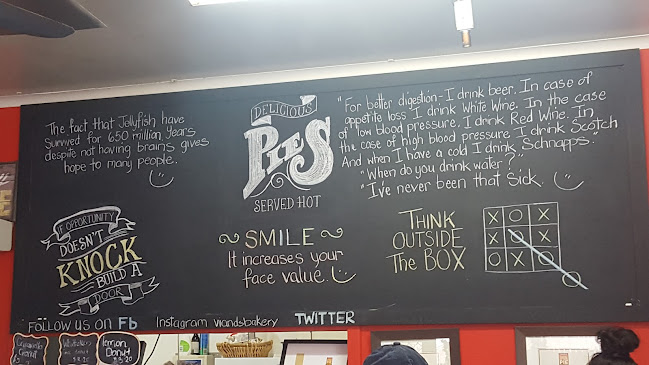 The fact that Jellyfish have
survived for 650 million years
despite not having brains gives
hope to many people.
DELICIOUS
PIES
SERVED HOT
"For better digestion - I drink beer. In case of
appetite loss I drink White Wine. In the case
of low blood pressure, I drink Red Wine. In
the case of high blood pressure I drink Scotch
And when I have a cold I drink Schnapps.
"When do you drink water?"
"I've never been that sick.
IF OPPORTUNITY
DOESN'T
KNOCK
BUILD A
DOOR
SMILE
It increases your
face value.
THINK
OUTSIDE
The BOX
X O X
X O X
O X X
O
FOLLOW US ON Fb Instagram viandsbakery TWITTER
Lemon
Donut